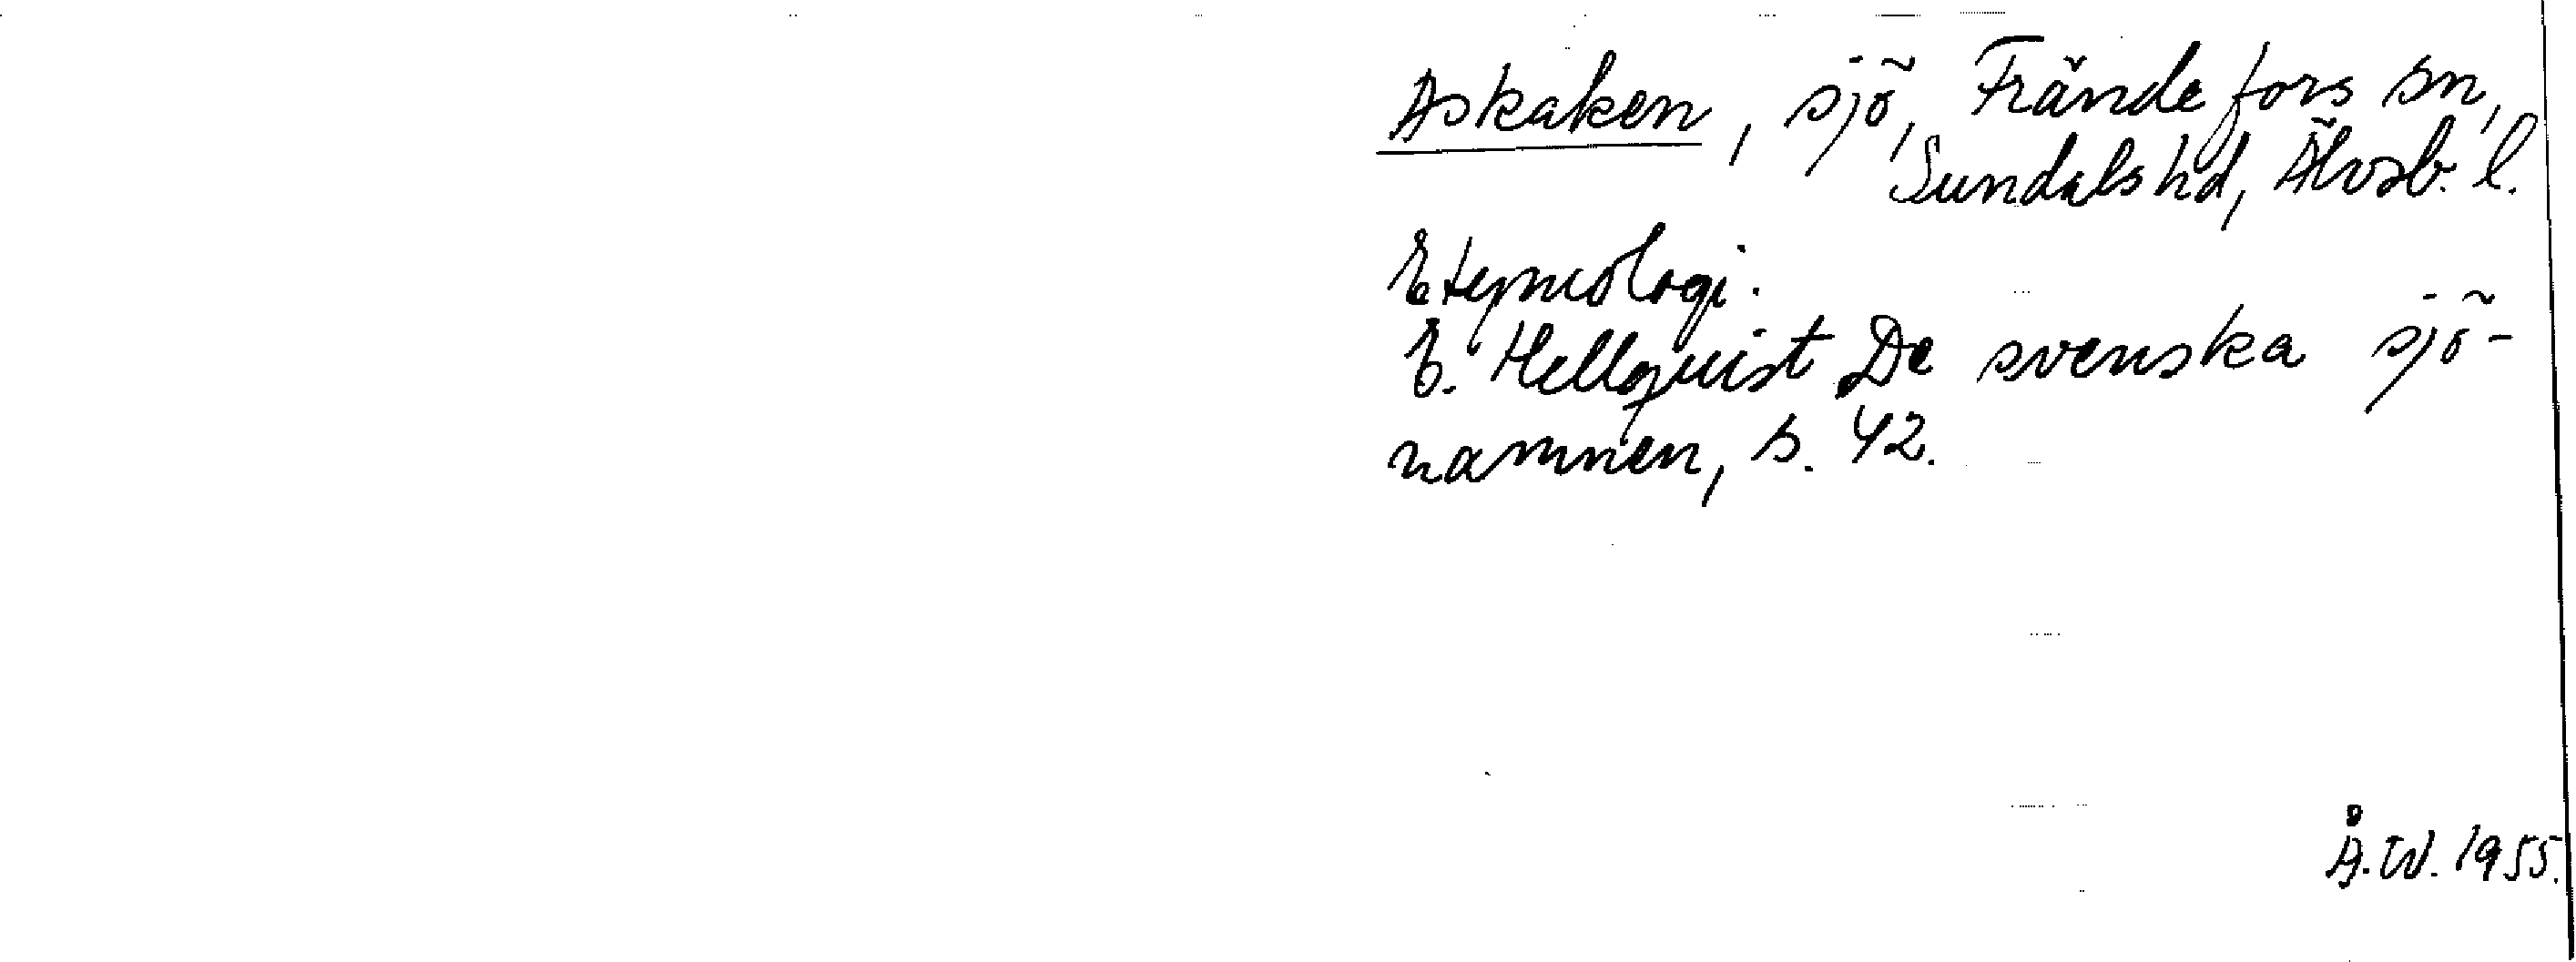 Askaken, sjö, Frändefors sn,
Sundals hd, Älvsb. l.
Etymologi.
E. Hellquist De svenska sjö-
namnen, s. 42.
Å.W. 1955.